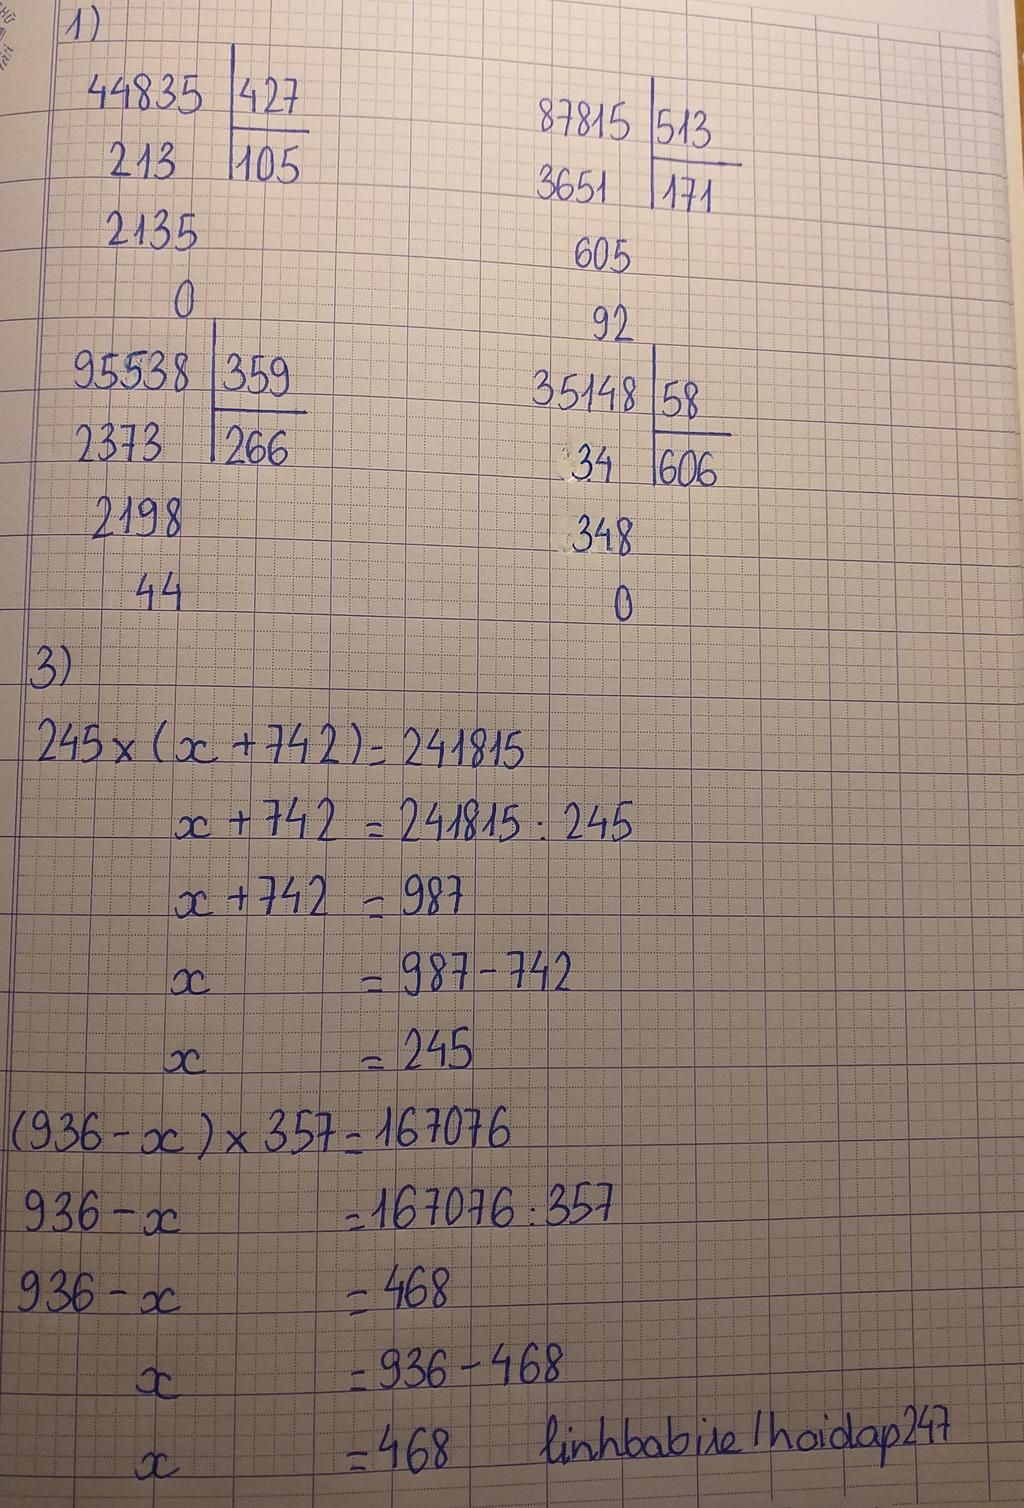 1)
44835 427
213 105
2135
0
87815 513
3651 171
605
92
95538 359
2373 266
2198
44
35148 58
34 606
348
0
3)
245 x (x + 742) = 241815
x + 742 = 241815 : 245
x + 742 = 987
x = 987 - 742
x = 245
(936 - x) x 357 = 167076
936 - x = 167076 : 357
936 - x = 468
x = 936 - 468
x = 468 linhbabiie/hoidap247